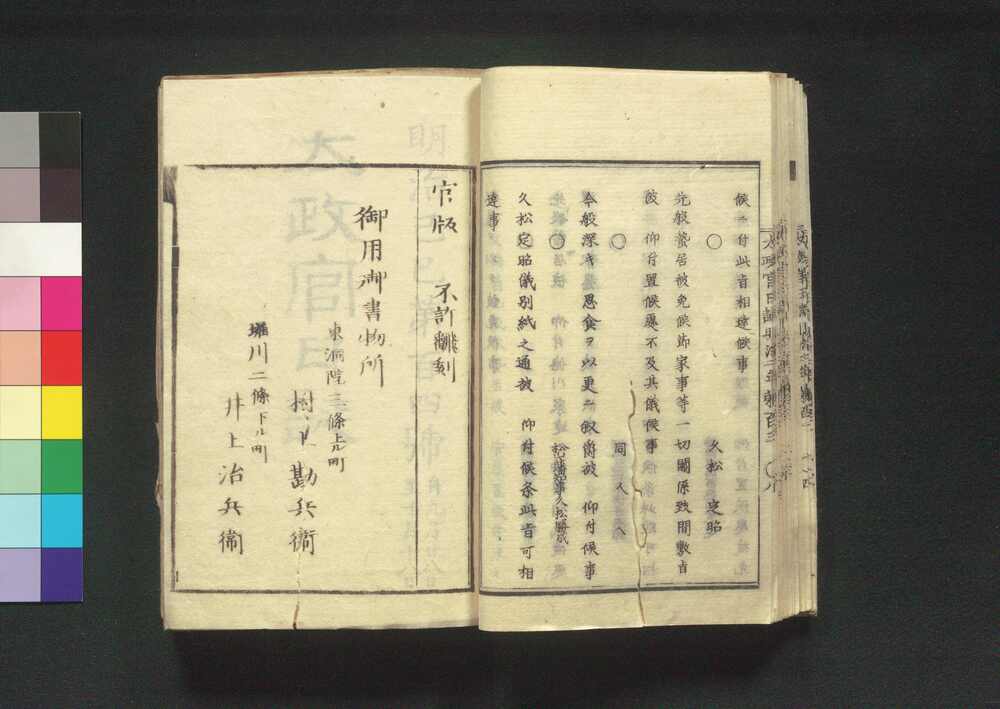 候ニ付此旨相達候事
○
久松定昭
先般蟄居被免候節家事等一切関係致間敷旨
被 仰付置候処不及其儀候事
○
同人へ
今般深キ
思食ヲ以更ニ被 仰付候事
○
久松勝成
久松定昭儀別紙之通被 仰付候条此旨可相
達事
太政官日誌明治二年第百三
官版 不許翻刻
御用御書物所
東洞院三條上ル町
村上勘兵衛
堀川二條下ル町
井上治兵衛